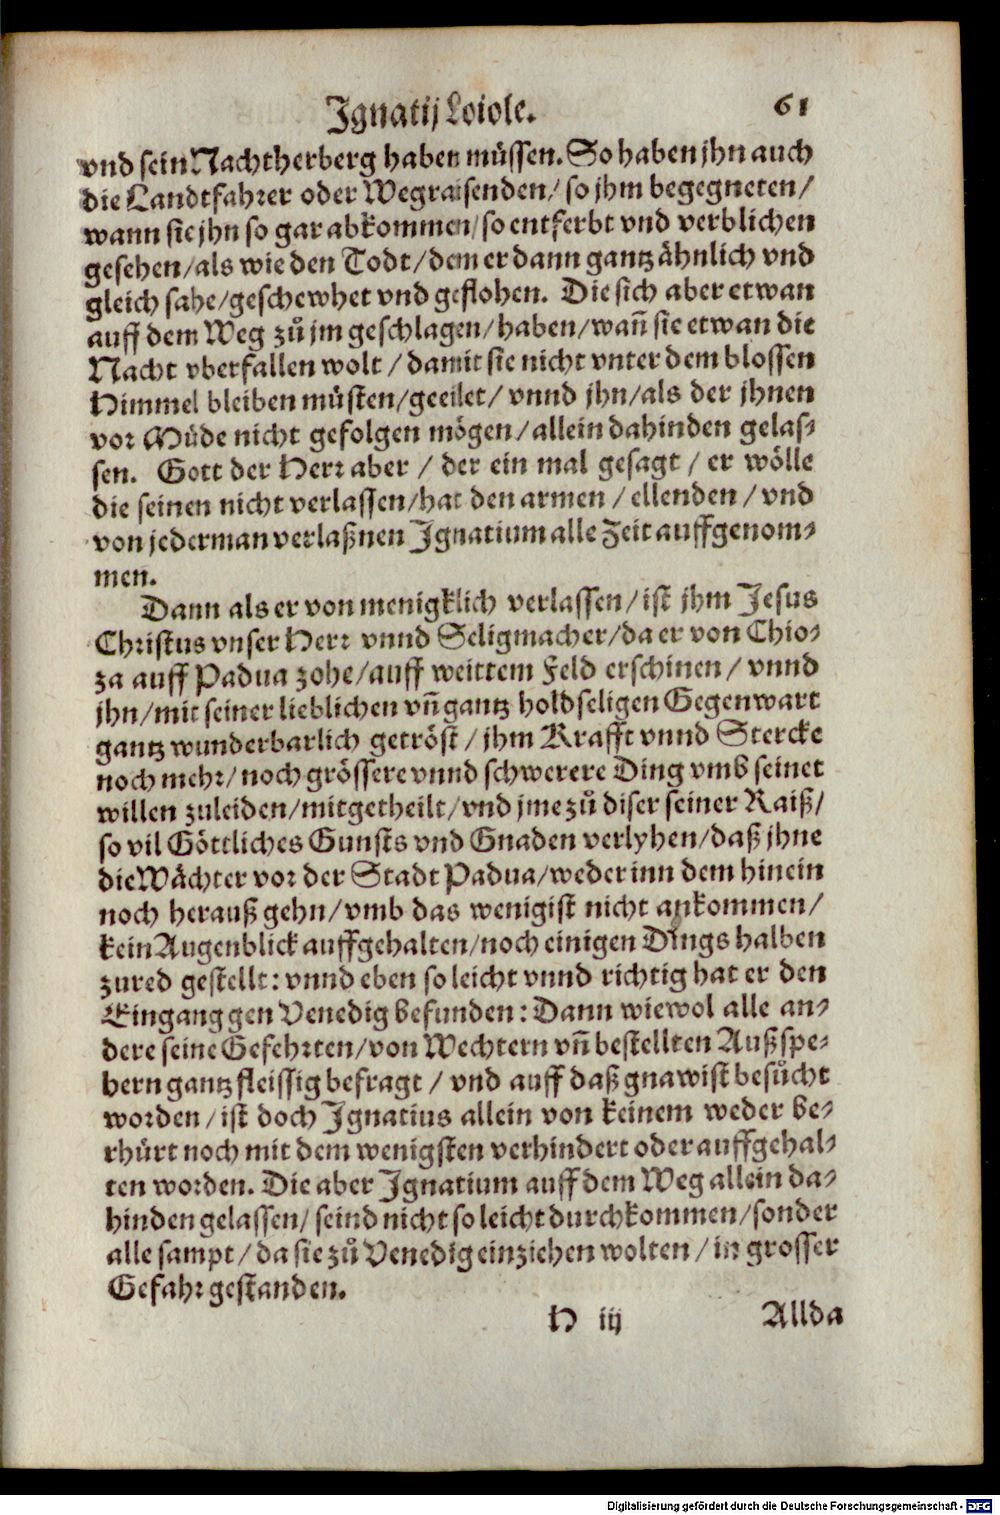 Ignatij Loiole. 61
vnd sein Nachtherberg haben müssen. So haben jhn auch
die Landtfahrer oder Wegraisenden/ so jhm begegneten/
wann sie jhn so gar abkommen/ so entferbt vnd verblichen
gesehen/ als wie den Todt/ dem er dann gantz ähnlich vnd
gleich sahe/ geschewhet vnd geflohen. Die sich aber etwan
auff dem Weg zů jm geschlagen/ haben/ wañ sie etwan die
Nacht vberfallen wolt/ damit sie nicht vnter dem blossen
Himmel bleiben müsten/ geeilet/ vnnd jhn/ als der jhnen
vor Müde nicht gefolgen mögen/ allein dahinden gelas-
sen. Gott der Herr aber/ der ein mal gesagt/ er wölle
die seinen nicht verlassen/ hat den armen/ ellenden/ vnd
von jederman verlaßnen Ignatium alle Zeit auffgenom-
men.
Dann als er von menigklich verlassen/ ist jhm Jesus
Christus vnser Herr vnnd Seligmacher/ da er von Chio-
za auff Padua zohe/ auff weittem Feld erschinen/ vnnd
jhn/ mit seiner lieblichen vñ gantz holdseligen Gegenwart
gantz wunderbarlich getröst/ jhm Krafft vnnd Stercke
noch mehr/ noch grössere vnnd schwerere Ding vmb seinet
willen zuleiden/ mitgetheilt/ vnd jme zů diser seiner Raiß/
so vil Göttliches Gunsts vnd Gnaden verlyhen/ daß jhne
die Wächter vor der Stadt Padua/ weder inn dem hinein
noch herauß gehn/ vmb das wenigist nicht ankommen/
kein Augenblick auffgehalten/ noch einigen Dings halben
zured gestellt: vnnd eben so leicht vnnd richtig hat er den
Eingang gen Venedig befunden: Dann wiewol alle an-
dere seine Gefehrten/ von Wechtern vñ bestellten Außspe-
hern gantz fleissig befragt/ vnd auff daß gnawist besůcht
worden/ ist doch Ignatius allein von keinem weder be-
rhürt noch mit dem wenigsten verhindert oder auffgehal-
ten worden. Die aber Ignatium auff dem Weg allein da-
hinden gelassen/ seind nicht so leicht durchkommen/ sonder
alle sampt/ da sie zů Venedig einziehen wolten/ in grosser
Gefahr gestanden.
H iij Allda
Digitalisierung gefördert durch die Deutsche Forschungsgemeinschaft - DFG